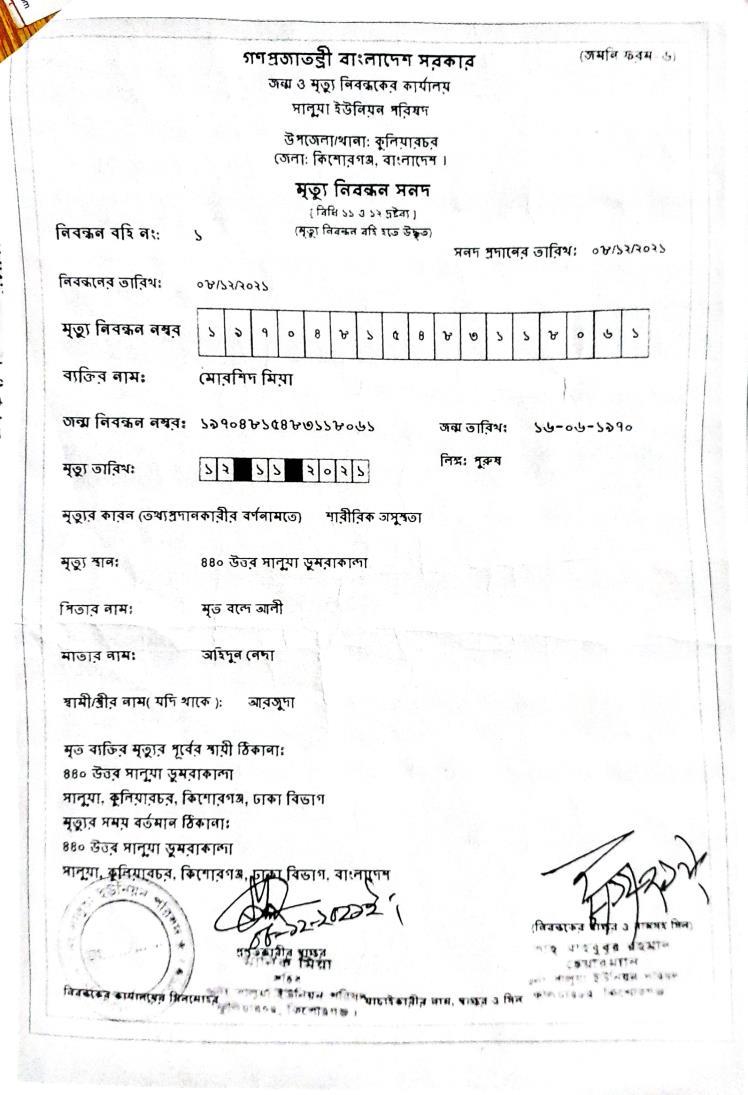 গণপ্রজাতন্ত্রী বাংলাদেশ সরকার
(জমনি ফরম ৬)
জন্ম ও মৃত্যু নিবন্ধকের কার্যালয়
সালুয়া ইউনিয়ন পরিষদ
উপজেলা/থানা: কুলিয়ারচর
জেলা: কিশোরগঞ্জ, বাংলাদেশ ।
মৃত্যু নিবন্ধন সনদ
( বিধি ১১ ও ১২ দ্রষ্টব্য )
(মৃত্যু নিবন্ধন বহি হতে উদ্ধৃত)
নিবন্ধন বহি নং: ১
সনদ প্রদানের তারিখ: ০৮/১২/২০২১
নিবন্ধনের তারিখ: ০৮/১২/২০২১
মৃত্যু নিবন্ধন নম্বর ১ ৯ ৭ ০ ৪ ৮ ১ ৫ ৪ ৮ ৩ ১ ১ ৮ ০ ৬ ১
ব্যক্তির নাম: মোরশিদ মিয়া
জন্ম নিবন্ধন নম্বর: ১৯৭০৪৮১৫৪৮৩১১৮০৬১ জন্ম তারিখ: ১৬-০৬-১৯৭০
মৃত্যু তারিখ: ১ ২ ১ ১ ২ ০ ২ ১ লিঙ্গ: পুরুষ
মৃত্যুর কারন (তথ্যপ্রদানকারীর বর্ণনামতে) শারীরিক অসুস্থতা
মৃত্যু স্থান: ৪৪০ উত্তর সালুয়া ডুমরাকান্দা
পিতার নাম: মৃত বন্দে আলী
মাতার নাম: অহিদুন নেসা
স্বামী/স্ত্রীর নাম( যদি থাকে ): আরজুদা
মৃত ব্যক্তির মৃত্যুর পূর্বের স্থায়ী ঠিকানা:
৪৪০ উত্তর সালুয়া ডুমরাকান্দা
সালুয়া, কুলিয়ারচর, কিশোরগঞ্জ, ঢাকা বিভাগ
মৃত্যুর সময় বর্তমান ঠিকানা:
৪৪০ উত্তর সালুয়া ডুমরাকান্দা
সালুয়া, কুলিয়ারচর, কিশোরগঞ্জ, ঢাকা বিভাগ, বাংলাদেশ
ইউনিয়ন পরিষদ
(নিবন্ধকের স্বাক্ষর ও নামসহ সিল)
মিয়া
চেয়ারম্যান
সচিব
সালুয়া ইউনিয়ন পরিষদ
নিবন্ধকের কার্যালয়ের সিলমোহর
যাচাইকারীর নাম, স্বাক্ষর ও সিল
কুলিয়ারচর, কিশোরগঞ্জ ।